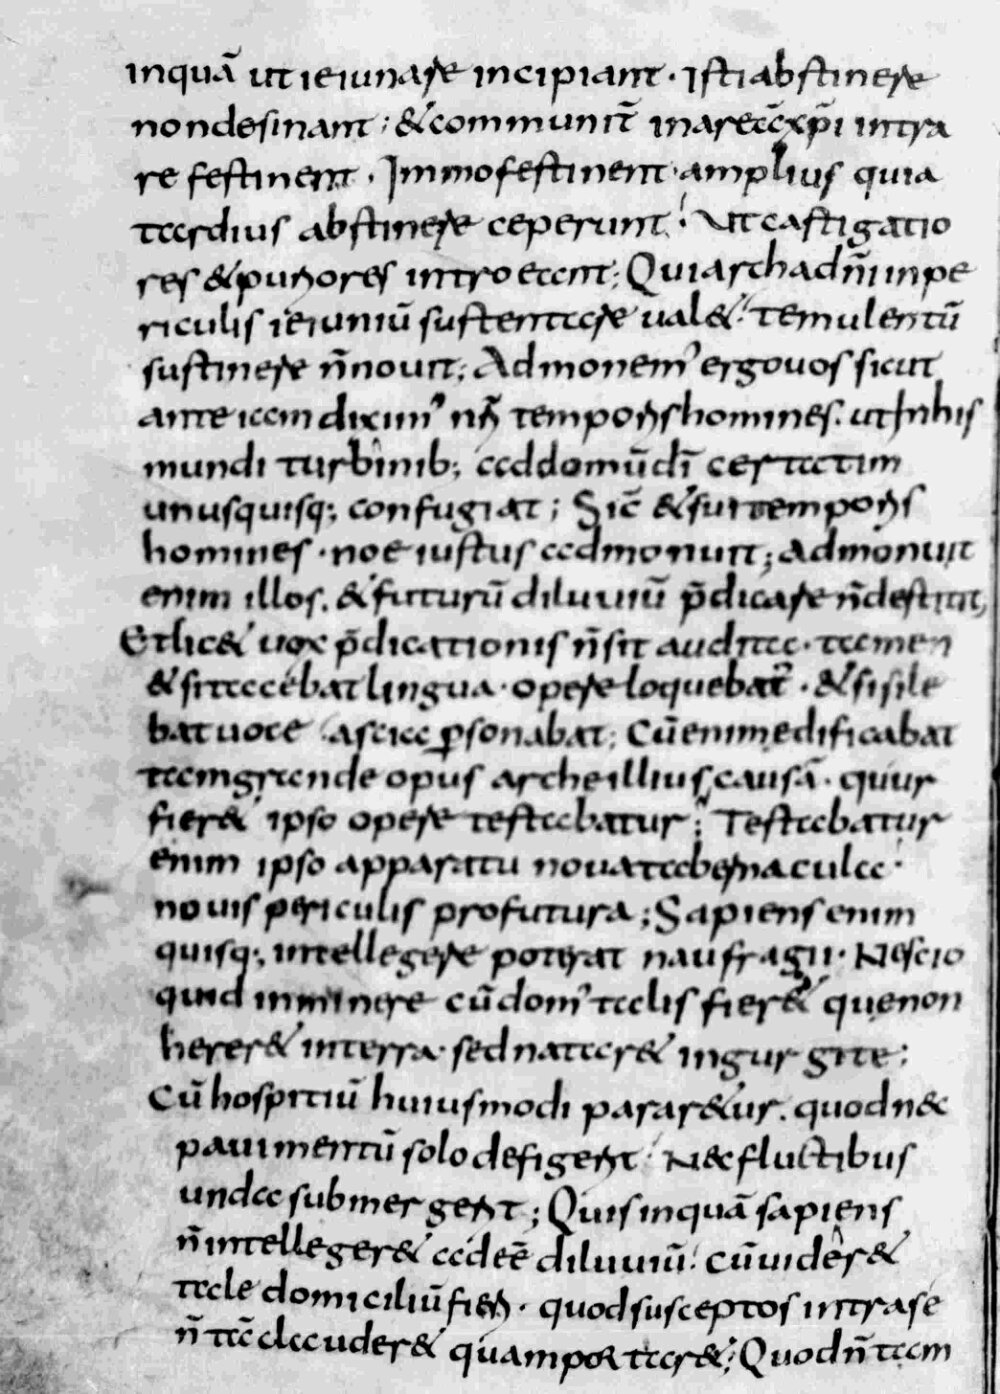 inquā ut ieiunare incipiant. Isti abstinere
non desinant; & communit̄ in arecā xp̄i intra
re festinent. Immo festinent amplius quia
tardius abstinere ceperunt. Ut castigatio
res & puriores introeant; Qui archa dn̄i in pe
riculis ieiuniū sustentare ual&. temulentū
sustinere n̄ nouit; Admonem' ergo uos sicut
ante iam dixim' nr̄i temporis homines. ut In his
mundi turbinib; ad domū dī certatim
unusquisq; confugiat; Sic̄ & sui temporis
homines. noe iustus admonuit; Admonuit
enim illos. & futurū diluuiū p̄dicare n̄ destitit;
Et lic& uox p̄dicationis n̄ sit audita. tamen
& si tacebat lingua. opere loquebat̄. & si sile
bat uoce ascia ꝑsonabat; Cū enim edificabat
tam grande opus arche illius causā. quur
fier& ipso opere testabatur; Testabatur
enim ipso apparatu noua tabernacula.
nouis periculis profutura; Sapiens enim
quisq; intellegere poterat naufragii. Nescio
quid inminere cū dom' talis fier& que non
herer& in terra. sed natar& in gurgite;
Cū hospitiū huiusmodi parar&ur. quod nec
pauimentū solo defigerit. Nec fluctibus
unda submergerit; Quis inquā sapiens
n̄ intelleger& adeē diluuiū. cū uider&
tale domiciliū fieri. quod susceptos intrase
n̄ tā clauder& quam portar&; Quod n̄ tam